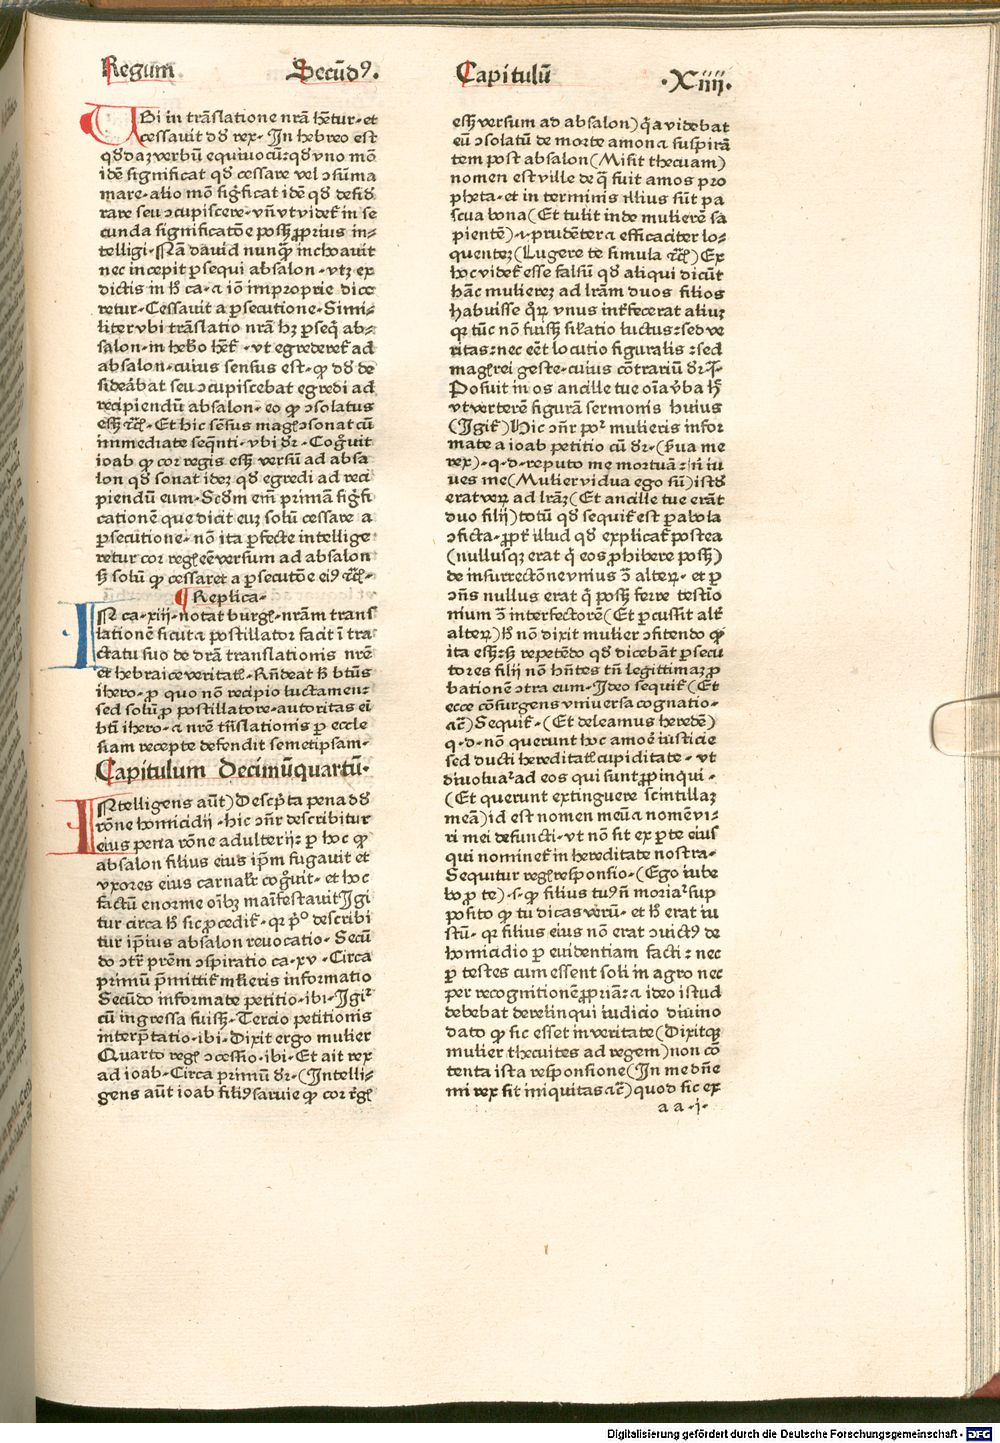 Regum Secūdꝰ. Capitulū .Xiiij.
UBi in trāslatione nrā hetur·et
cessavit dd rex· In hebreo est
qddaz verbū equivocū: qd vno mō
idē significat qd cessare vel ɔsūma
mare·alio mō figficat idē qd defid
rare seu ɔcupiscere·vn vt videt in se
cunda significatōe possz proprius in⸗
telligi·Nā david nunqz inchoavit
nec incepit psequi absalon·vtz ex
dictis in hͦ ca·a iō improprie dice
retur·Cessavit a psecutione·Simi⸗
liter vbi trāslatio nrā hz pseqͥ ab⸗
salon·in hebͦo het·vt egrederet ad
absalon·cuius sensus est·qp dd de
siderabat seu ɔcupiscebat egredi ad
recipiendū absalon·eo qp ɔsolatus
essz rc̄·Et hic sensus magis ɔsonat cū
immediate seqnti·vbi dr·Cognovit
ioab qp cor regis essz versū ad absa
lon qd sonat idez qd egredi ad reci
piendū eum·Scdm em primā figfi
cationē que dicit euz solū cessare a
psecutione·nō ita pfecte intellige
retur cor regis eē versum ad absalon
sz solū qp cessaret a psecutōe eiꝰ rc̄·
Replica·
IN ca·xiij·notat burgen·nrām trans
lationē sicuta postillator facit ī tra
ctatu suo de drā translationis nrē
et hebraice veritatis·Rndeat hͦ btūs
ihero·p quo nō recipio luctamen:
sed solū p postillatore·autoritas eī
btī ihero·a nrē trāslationis p eccle
siam recepte defendit semetipsam·
Capitulum Decimūquartū·
INtelligens aut) Descpta pena dd
rōne homicidij·hic ɔnr describitur
eius pena rōne adulterij: p hoc qp
absalon filius eius ipm fugavit et
vxores eius carnalr cognovit·et hoc
factū enorme oibz maifestavit Igi
tur circa hͦ sic procedit·qr pͦ describi
tur ipius absalon revocatio·Secū
do ɔtr prem ɔspiratio ca·xv·Circa
primū pmittit mlieris informatio
Secūdo informate petitio·ibi·Igit
cū ingressa fuissz·Tercio petitionis
interptatio·ibi·Dixit ergo mulier
Quarto regis ɔcessio·ibi·Et ait rex
ad ioab·Circa primū dr·(Intelli⸗
gens aut ioab filiꝰ sarvie qp cor regis
essz versum ad absalon) qa videbat
eū ɔsolatū de morte amon a suspirā
tem post absalon (Misit thecuam)
nomen est ville de q fuit amos pro
pheta·et in terminis illius sūt pa
scua bona (Et tulit inde mulierē sa
pientē) a prudēter a efficaciter lo⸗
quentez (Lugere te simula rc̄) Ex
hoc videt esse falsū qd aliqui dicūt
hāc mulierez ad lrām duos filios
habuisse qrum vnus intfecerat aliuz
qr tūc nō fuissz simlatio luctus: sed ve
ritas: nec eēt locutio figuralis: sed
magis rei geste·cuius cōtrariū dr ī·
Posuit in os ancille tue oīa vba hͦ
vt verterē figurā sermonis huius
(Igit) Hic ɔnr por mulieris infor
mate a ioab petitio cū dr·(Serva me
rex)·q·d·reputo me mortuā: ni iu
ves me (Mulier vidua ego sū) istd
erat verum ad lrāz (Et ancille tue erāt
duo filij) totū qd sequit est pabola
ɔficta·propt illud qd explicat postea
(nullusqz erat q eos phibere possz)
de insurrectōne vnius ɔ̄ alterum·et p
ɔns nullus erat q possz ferre testio
nium ɔ̄ interfectorē (Et pcussit altr
alterum) hͦ nō dixit mulier ɔfitendo qp
ita essz: sz repetēdo qd dicebāt psecu
tores filij nō hntes tn legittimaz p
bationē ɔtra eum·Ideo sequit (Et
ecce cōsurgens vniversa cognatio·
ac̄) Sequit·(Et deleamus heredē)
q·d·nō querunt hoc amoe iusticie
sed ducti hereditatis cupiditate·vt
divolvat ad eos qui sunt propinqui·
(Et querunt extinguere scintillaz
meā) id est nomen meū a nomē vi⸗
ri mei defuncti·vt nō sit ex pte eius
qui nominet in hereditate nostra·
Sequitur regis responsio·(Ego iube
bo p te)·s·qp filius tuꝰ n moriat sup
posito qp tu dicas verū·et hͦ erat iu
stū·qr filius eius nō erat ɔvictꝰ de
homicidio p evidentiam facti: nec
p testes cum essent soli in agro nec
per recognitionē propriā: a ideo istud
debebat derelinqui iudicio divino
dato qp sic esset in veritate (Dixitqz
mulier thecuites ad regem) non cō
tenta ista responsione (In me dne
mi rex sit iniquitas ac̄) quod sic ex
a a·j·
Digitalisierung gefördert durch die Deutsche Forschungsgemeinschaft - DFG